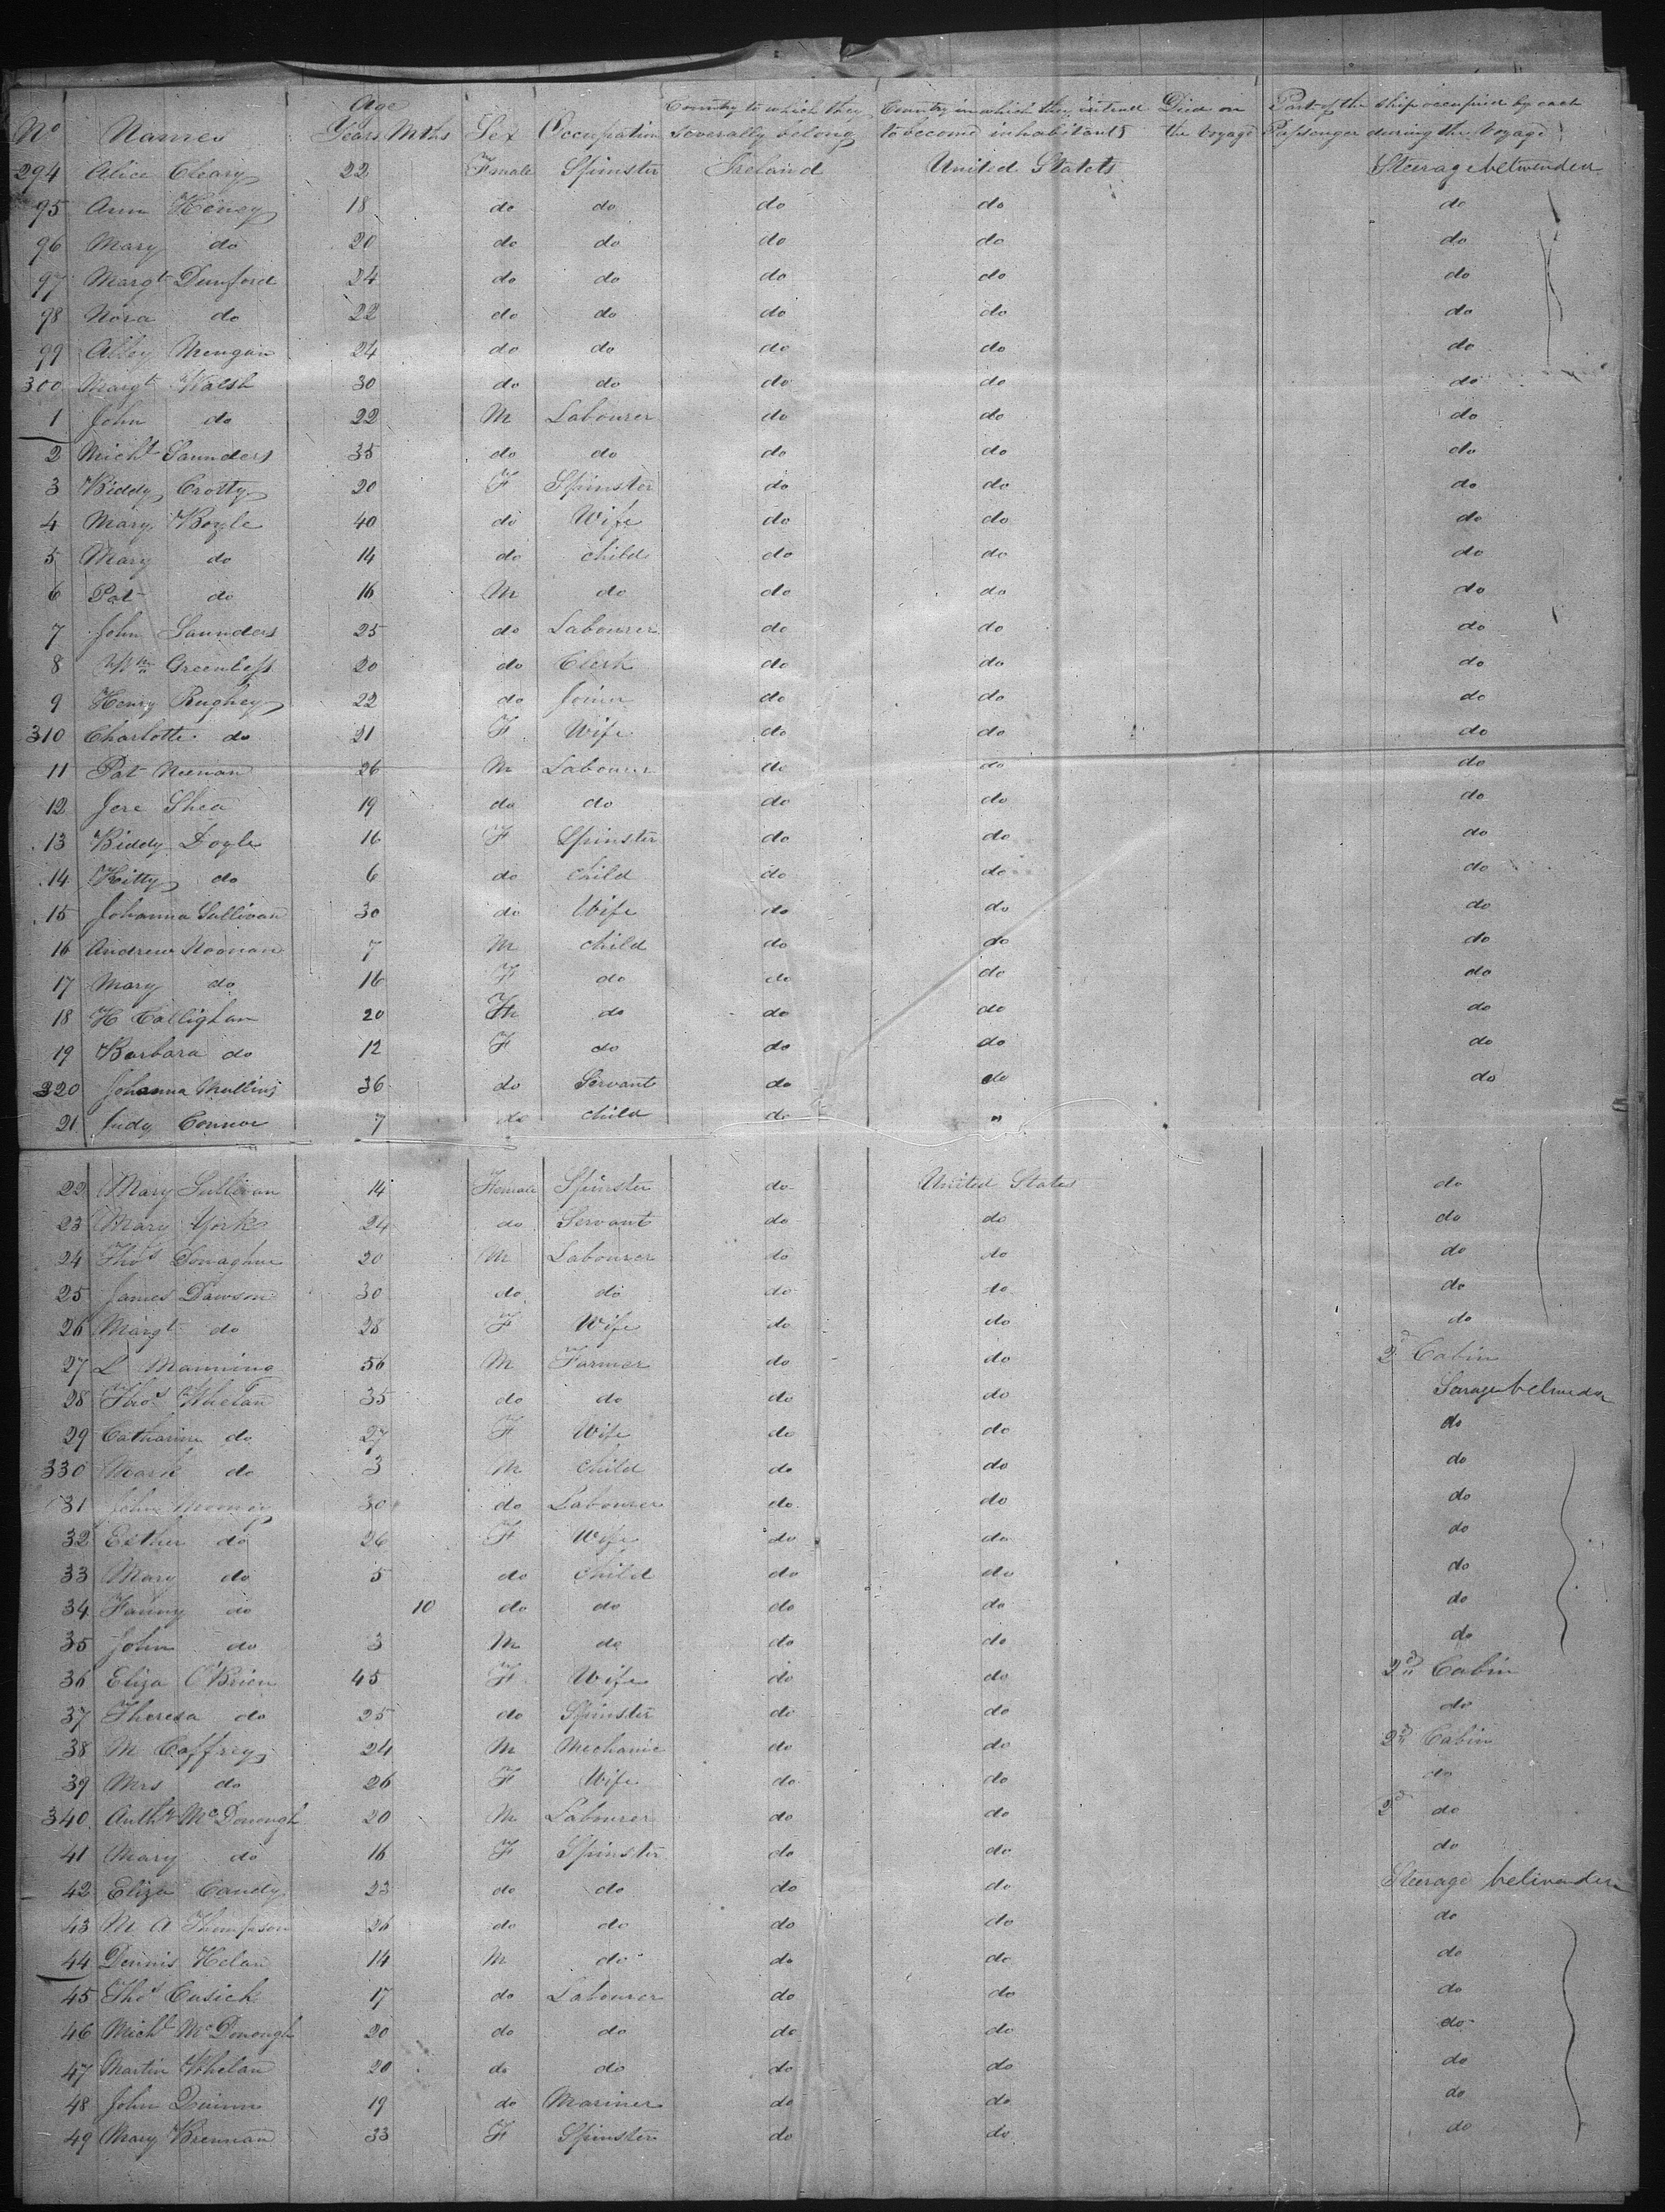 Age
Country to which they Country in which they intend Died on Part of the ship occupied by each
No Names Years Mths Sex Occupation severally belong to become inhabitants the Voyage Passenger during the Voyage
294 Alice Cleary 22 Female Spinster Ireland United States Steerage
95 Ann Heney 18 do do do do do
96 Mary do 20 do do do do do
97 Margt Dunford 24 do do do do do
98 Nora do 22 do do do do do
99 Abby Mengan 24 do do do do do
300 Margt Walsh 30 do do do do do
1 John do 22 M Labourer do do do
2 Michl Saunders 35 do do do do do
3 Biddy Crotty 20 F Spinster do do do
4 Mary Boyle 40 do Wife do do do
5 Mary do 14 do child do do do
6 Pat do 16 M do do do do
7 John Saunders 25 do Labourer do do do
8 Wm 20 do Clerk do do do
9 Henry Rughey 22 do Joiner do do do
310 Charlotte do 21 F Wife do do do
11 Pat Neenan 26 M Labourer do do do
12 Jere Shea 19 do do do do do
13 Biddy Doyle 16 F Spinster do do do
14 Kitty do 6 do child do do do
15 Johanna Sullivan 30 do Wife do do do
16 Andrew Noonan 7 M child do do do
17 Mary do 16 F do do do do
18 H Callighan 20 M do do do do
19 Barbara do 12 F do do do do
320 Johanna Mullins 36 do Servant do do do
21 Judy Connor 7 do child do "
22 Mary Sullivan 14 Female Spinster do United States do
23 Mary York 24 do Servant do do do
24 Thos Donaghue 20 M Labourer do do do
25 James Dawson 30 do do do do do
26 Margt do 28 F Wife do do do
27 L Manning 56 M Farmer do do 2d Cabin
28 Thos Whelan 35 do do do do
29 Catharine do 27 F Wife do do do
330 Mark do 3 M child do do do
31 John Mooney 30 do Labourer do do do
32 Esther do 26 F Wife do do do
33 Mary do 5 do child do do do
34 Fanny do 10 do do do do do
35 John do 3 M do do do do
36 Eliza O'Brien 45 F Wife do do 2d Cabin
37 Theresa do 25 do Spinster do do do
38 M Caffrey 24 M Mechanic do do 2d Cabin
39 Mrs do 26 F Wife do do do
340 Anthy McDonough 20 M Labourer do do 2d do
41 Mary do 16 F Spinster do do do
42 Eliza Candy 23 do do do do Steerage
43 M A Thompson 26 do do do do do
44 Dennis Helan 14 M do do do do
45 Thos Cusick 17 do Labourer do do do
46 Michl McDonough 20 do do do do do
47 Martin Whelan 20 do do do do do
48 John Quinn 19 do Mariner do do do
49 Mary Brennan 33 F Spinster do do do